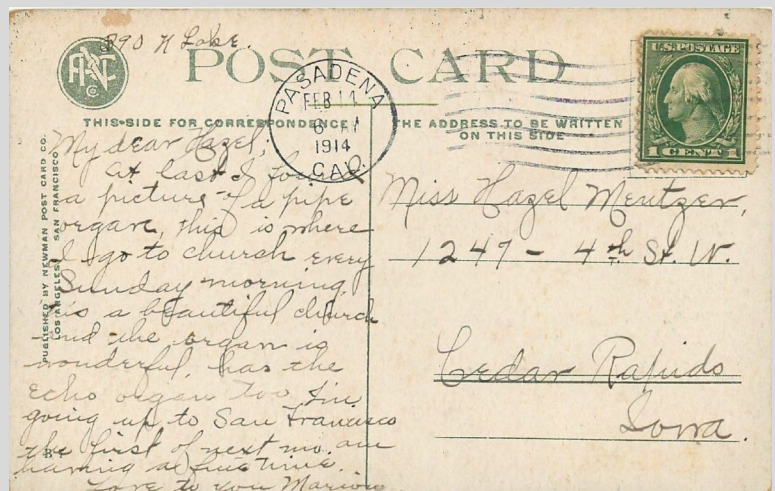 890 N Lake.
POST CARD
PASADENA
FEB 14
6
1914
CAL.
U.S. POSTAGE
1 CENT 1
THIS SIDE FOR CORRESPONDENCE
THE ADDRESS TO BE WRITTEN
ON THIS SIDE
PUBLISHED BY NEWMAN POST CARD CO.
LOS ANGELES & SAN FRANCISCO
My dear Hazel,
At last I
a picture of a pipe
organ, this is where
I go to church every
Sunday morning,
is a beautiful church
and the organ is
wonderful, has the
echo organ too. I'm
going up to San Francisco
the first of next mo. am
having a fine time.
Love to you Marion
Miss Hazel Mentzer,
1247 - 4th St. W.
Cedar Rapids
Iowa.